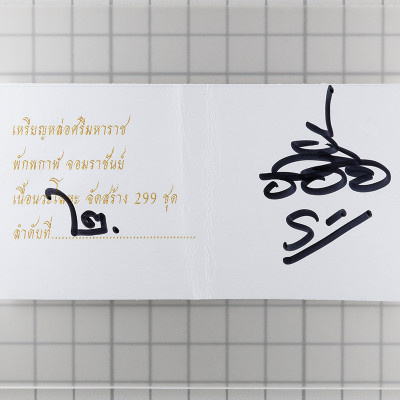 เหรียญหล่อศรีมหาราช
พักพกาฬ จอมราชันย์
เนื้อนวะโลหะ จัดสร้าง 299 ชุด
ลำดับที่ ๒.